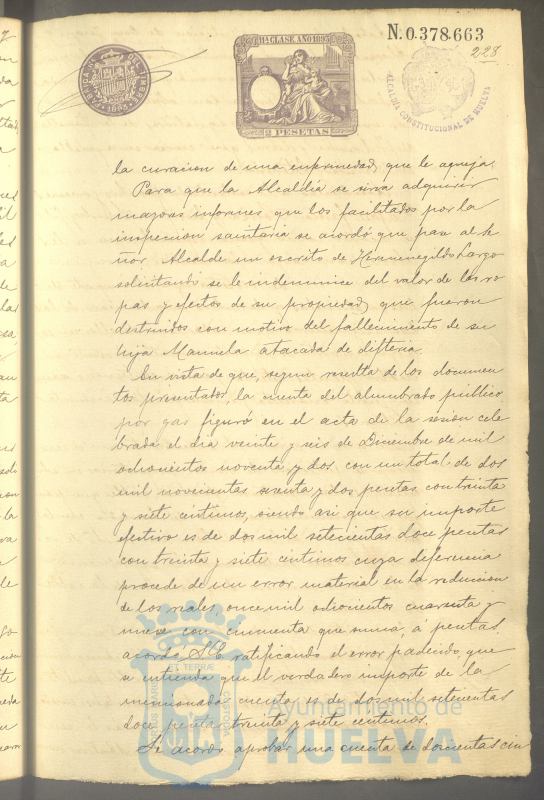 N. 0.378.663
228
11ª CLASE AÑO 1893
2 PESETAS
ALCALDIA CONSTITUCIONAL DE HUELVA
la curacion de una enfermedad que le aqueja.
Para que la Alcaldía se sirva adquirir
mayores informes que los facilitados por la
inspeccion sanitaria se acordó que pase al Se
ñor Alcalde un escrito de Hermenegildo Largo
solicitando se le indemnice del valor de las ro
pas y efectos de su propiedad que fueron
destruidos con motivo del fallecimiento de su
hija Manuela atacada de difteria.
En vista de que, segun resulta de los documen
tos presentados, la cuenta del alumbrado público
por gas figuró en el acta de la sesion cele
brada el dia veinte y seis de Diciembre de mil
ochocientos noventa y dos con un total de dos
mil novecientas y dos pesetas con treinta
y siete centimos, siendo asi que su importe
efectivo es de dos mil setecientas doce pesetas
con treinta y siete centimos cuya diferencia
procede de un error material en la reduccion
de los reales, once mil ochocientos cuarenta y
nueve con cincuenta que suma, á pesetas
acordó S.E. ratificando el error padecido que
se entienda que el verdadero importe de la
mencionada cuenta es de dos mil setecientas
doce pesetas treinta y siete centimos.
Se acordó aprobar una cuenta de doscientas cin
Ayuntamiento de
HUELVA